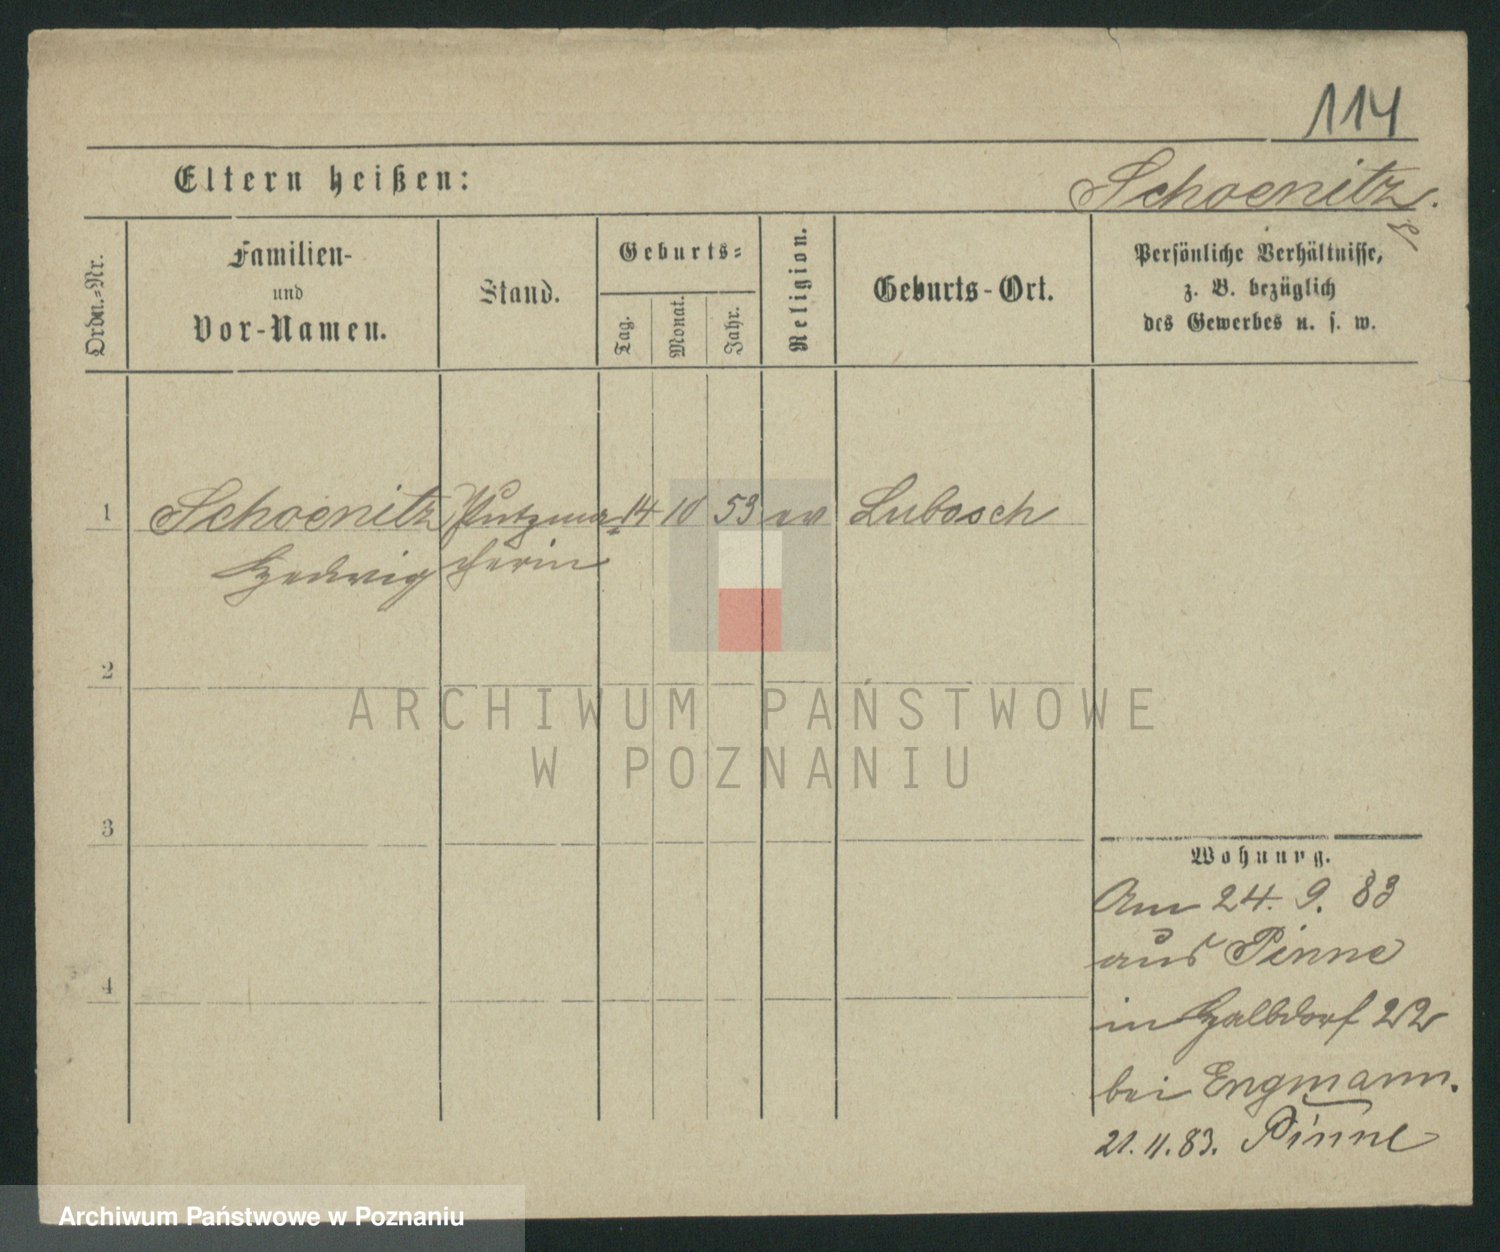 114
Eltern heißen:
Schoenitz.
Ordn.-Nr.
Familien-
und
Vor-Namen.
Stand.
Geburts-
Tag.
Monat.
Jahr.
Religion.
Geburts-Ort.
Persönliche Verhältnisse,
z. B. bezüglich
des Gewerbes u. s. w.
1 Schoenitz Putzma- 14 10 53 ev Lubosch
Hedwig cherin
2
3
4
Wohnung.
Am 24. 9. 83
aus Pinne
in Halbdorf 22
bei Engmann.
21. 11. 83. Pinne
ARCHIWUM PAŃSTWOWE
W POZNANIU
Archiwum Państwowe w Poznaniu